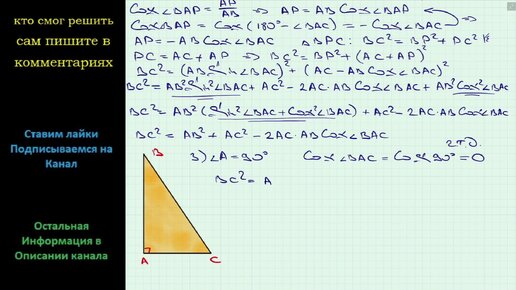 кто смог решить
сам пишите в
комментариях
Ставим лайки
Подписываемся на
Канал
Остальная
Информация в
Описании канала
Cos∠BAP = AP/AB ⇒ AP = AB Cos∠BAP
Cos∠BAP = Cos(180° - ∠BAC) = - Cos∠BAC
AP = -AB Cos∠BAC ΔBPC: BC² = BP² + PC²
PC = AC + AP ⇒ BC² = BP² + (AC + AP)²
BC² = (AB Sin∠BAC)² + (AC - AB Cos∠BAC)²
BC² = AB² Sin²∠BAC + AC² - 2AC·AB Cos∠BAC + AB² Cos²∠BAC
BC² = AB² (Sin²∠BAC + Cos²∠BAC) + AC² - 2AC·AB Cos∠BAC
BC² = AB² + AC² - 2AC·AB Cos∠BAC
г.т.д.
3) ∠A = 90° Cos∠BAC = Cos 90° = 0
BC² = A
B
A
C